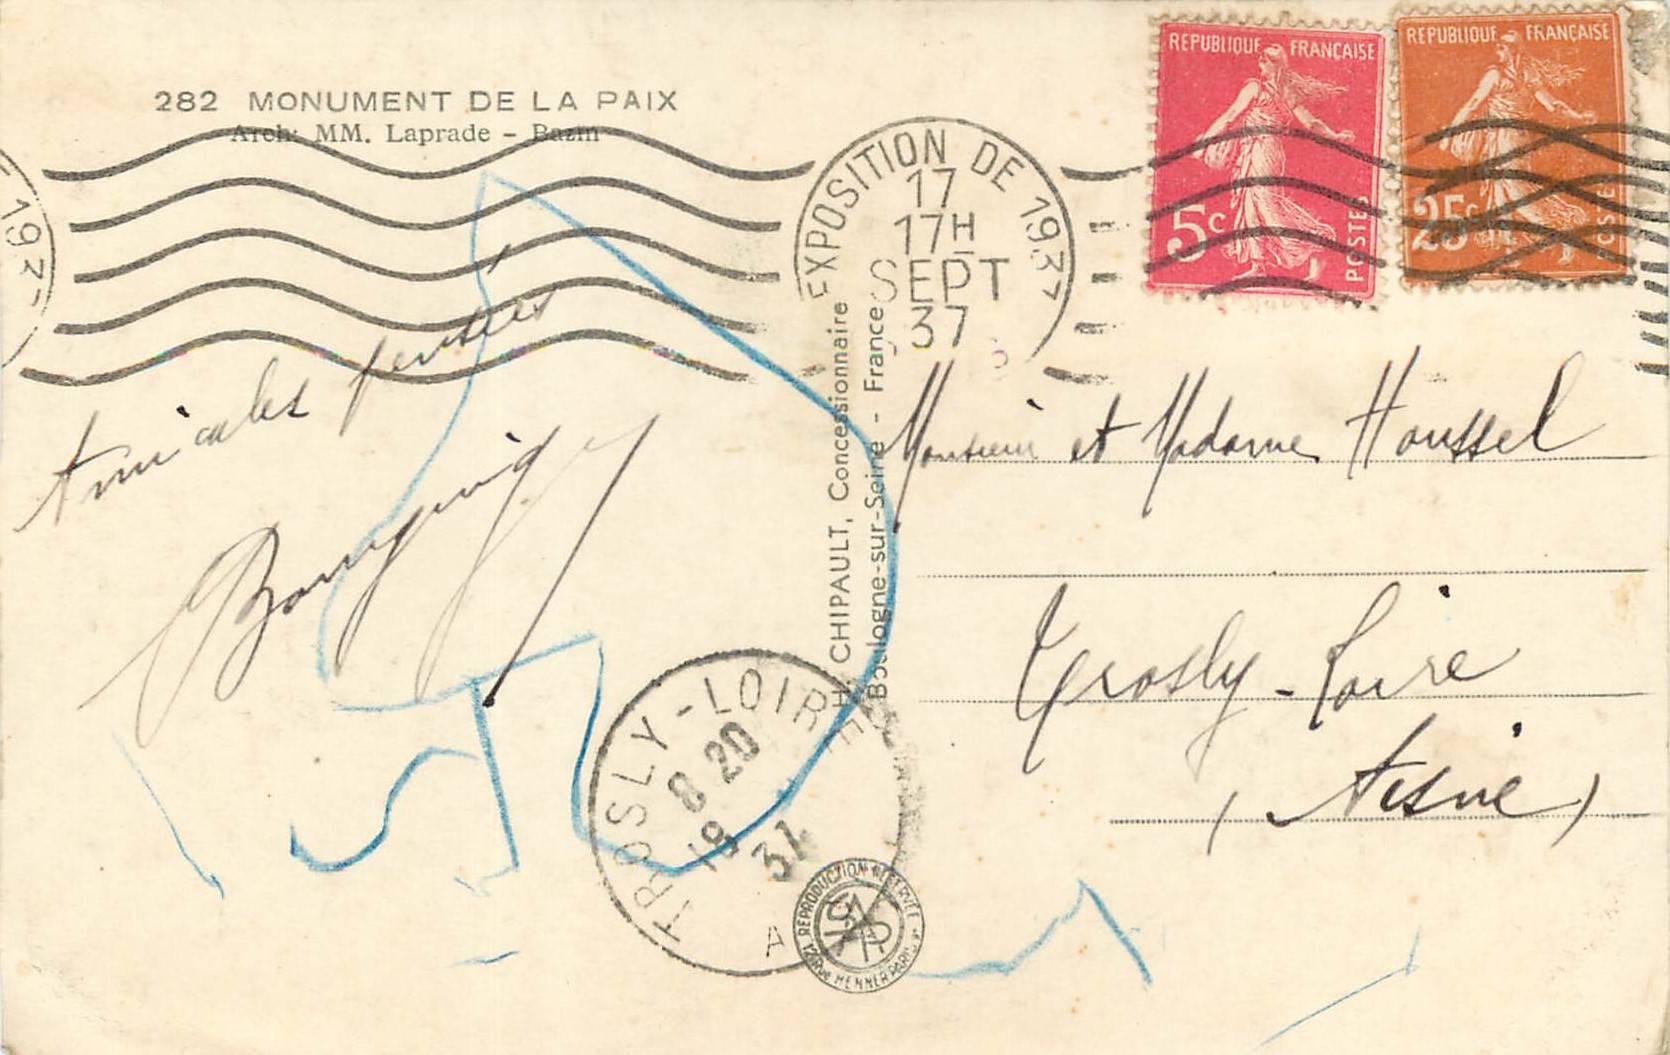 282 MONUMENT DE LA PAIX
Arch: MM. Laprade - Bazin
EXPOSITION DE 1937
17
17H
SEPT
37
REPUBLIQUE FRANÇAISE
5c
POSTES
REPUBLIQUE FRANÇAISE
25c
POSTES
Amicales pensées
H. CHIPAULT, Concessionnaire
Boulogne-sur-Seine - France
Monsieur et Madame Houssel
Trosly-Loire
(Aisne)
TROSLY-LOIRE
8 20
19
37
A
REPRODUCTION INTERDITE
SAP
12 Rue HENNER PARIS